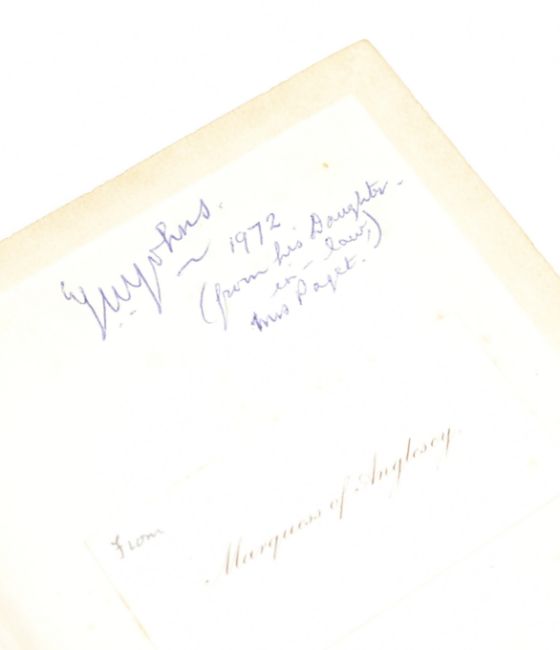 Johns.
~ 1972
(from his Daughter-
in-law,)
Mrs Paget.
From
Marquess of Anglesey.